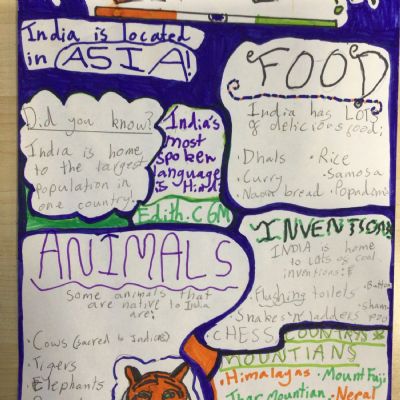 India is located
in ASIA!
FOOD
India has LOTS
of delicious food:
• Dhals • Rice
• Curry • Samosa
• Naan bread • Popadoms
Did you know?
India is home
to the largest
population in
one country.
India's
most
spoken
language
is Hindi
Edith.C 6M
INVENTIONS
INDIA is home
to lots of cool
inventions:
• Flushing toilets • Button
• Snakes 'n' ladders • Sham
poo
• CHESS
ANIMALS
Some animals that
are native to India
are:
• Cows (sacred to Indians)
• Tigers
• Elephants
COUNTRY'S
MOUNTIANS
• Himalayas • Mount Fuji
Thar Mountian • Nepal